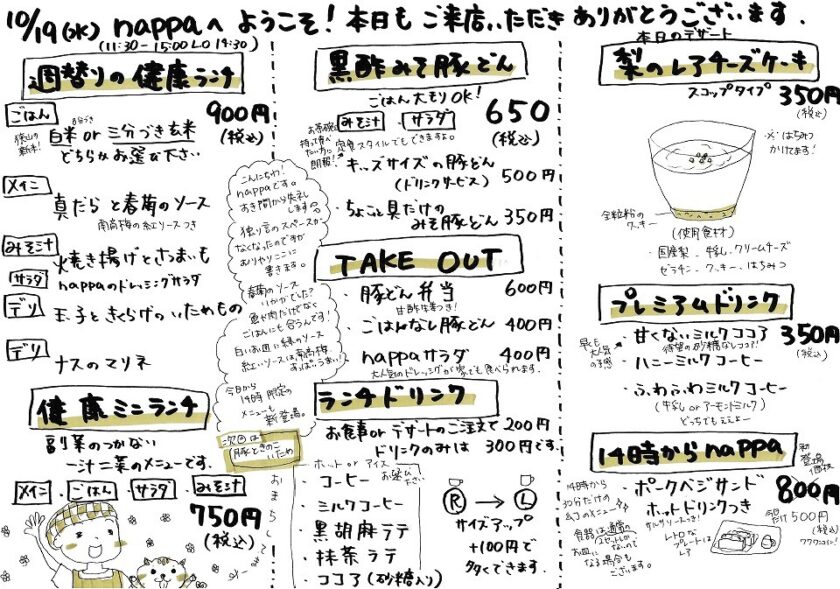 10/19(水) nappaへ ようこそ! 本日も ご来店いただき ありがとうございます.
(11:30-15:00 LO 14:30)
週替りの健康ランチ
ごはん
900円
(税込)
白米 or 三分づき玄米
どちらか お選び下さい
メイン
真だらと春菊のソース
南高梅の紅ソースつき
みそ汁
焼き揚げとさつまいも
サラダ
nappaのドレッシングサラダ
デリ
玉子ときくらげのいためもの
デリ
ナスのマリネ
健康ミニランチ
副菜のつかない
一汁二菜のメニューです.
メイン・ごはん・サラダ・みそ汁
750円
(税込)
こんにちわ!
nappaです。
あき間から失礼
します
独り言のスペースが
なくなったのですが
ここに
書きます。
春菊のソース
いかがでした?
魚や肉だけでなく
ごはんにも合うんです!
白いお皿に緑のソース
紅いソースは南高梅
今日から
14時限定の
メニューも
新登場。
次回は
豚ときのこ
いため
黒酢みそ豚どん
ごはん大もりOK!
みそ汁
サラダ
650
(税込)
定食スタイルでもできますよ。
・キッズサイズの豚どん
(ドリンクサービス)
500円
・ちょこっと具だけの
みそ豚どん 350円
TAKE OUT
・豚どん弁当 600円
・ごはんなし豚どん 400円
・nappaサラダ 400円
大人気のドレッシングが家でも食べられます.
ランチドリンク
お食事orデザートのご注文で 200円
ドリンクのみは 300円です.
ホット or アイス
お選び下さい
・コーヒー
・ミルクコーヒー
・黒胡麻ラテ
・抹茶ラテ
・ココア(砂糖入り)
R → L
サイズアップ
+100円で
多くできます.
本日のデザート
梨のレアチーズケーキ
スコップタイプ 350円
(税込)
※はちみつ
かけてます!
全粒粉の
クッキー
(使用食材)
・国産梨.牛乳.クリームチーズ
ゼラチン.クッキー.はちみつ
プレミアムドリンク
・甘くないミルクココア 350円
(税込)
待望の砂糖なしココア!
・ハニーミルクコーヒー
・ふわふわミルクコーヒー
(牛乳 or アーモンドミルク)
どっちでもええよー
14時からnappa
新登場
価格
14時から
30分だけの
・ポークベジサンド
ホットドリンクつき
800円
今日だけ500円
(税込)
食器は通常の
ないので
お皿に
なる場合も
ございます。
レトロな
プレートは
レア